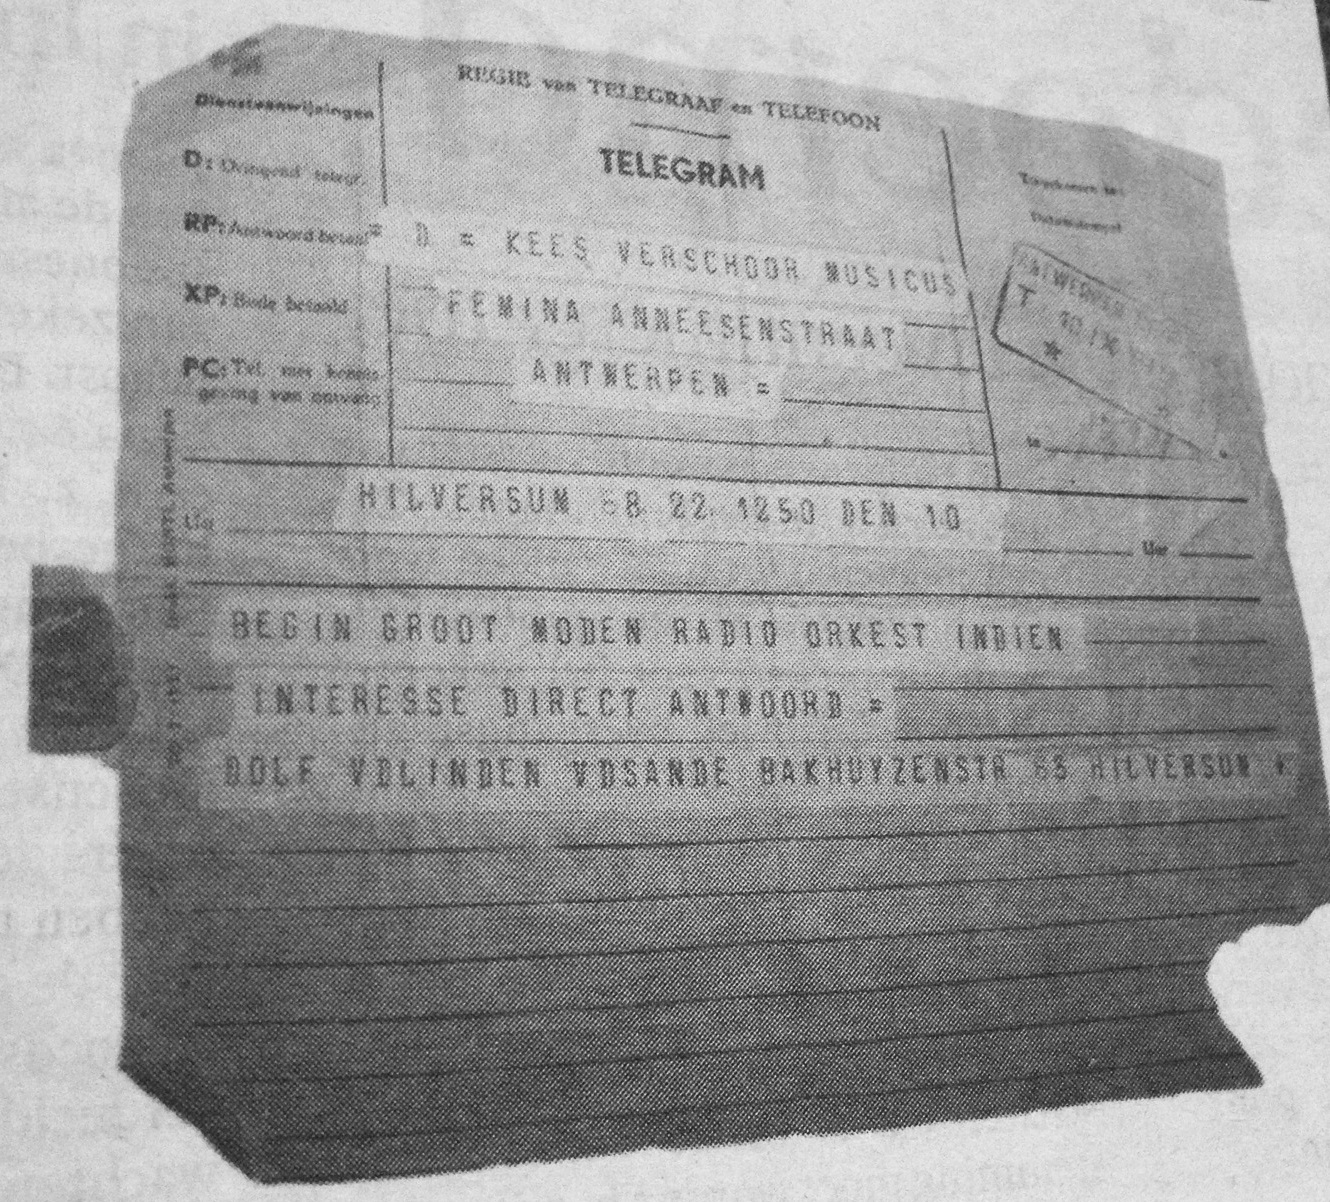 REGIE van TELEGRAAF en TELEFOON
TELEGRAM
Dienstaanwijzingen
D: Dringend telegr.
RP: Antwoord betaald
XP: Bode betaald
PC: Tel. met kennis-
geving van ontvang
= D = KEES VERSCHOOR MUSICUS
FEMINA ANNEESENSTRAAT
ANTWERPEN =
ANTWERPEN
T
HILVERSUM 68 22 1250 DEN 10
Uur
BEGIN GROOT MODEN RADIO ORKEST INDIEN
INTERESSE DIRECT ANTWOORD =
DOLF VDLINDEN VDSANDE BAKHUYZENSTR HILVERSUM